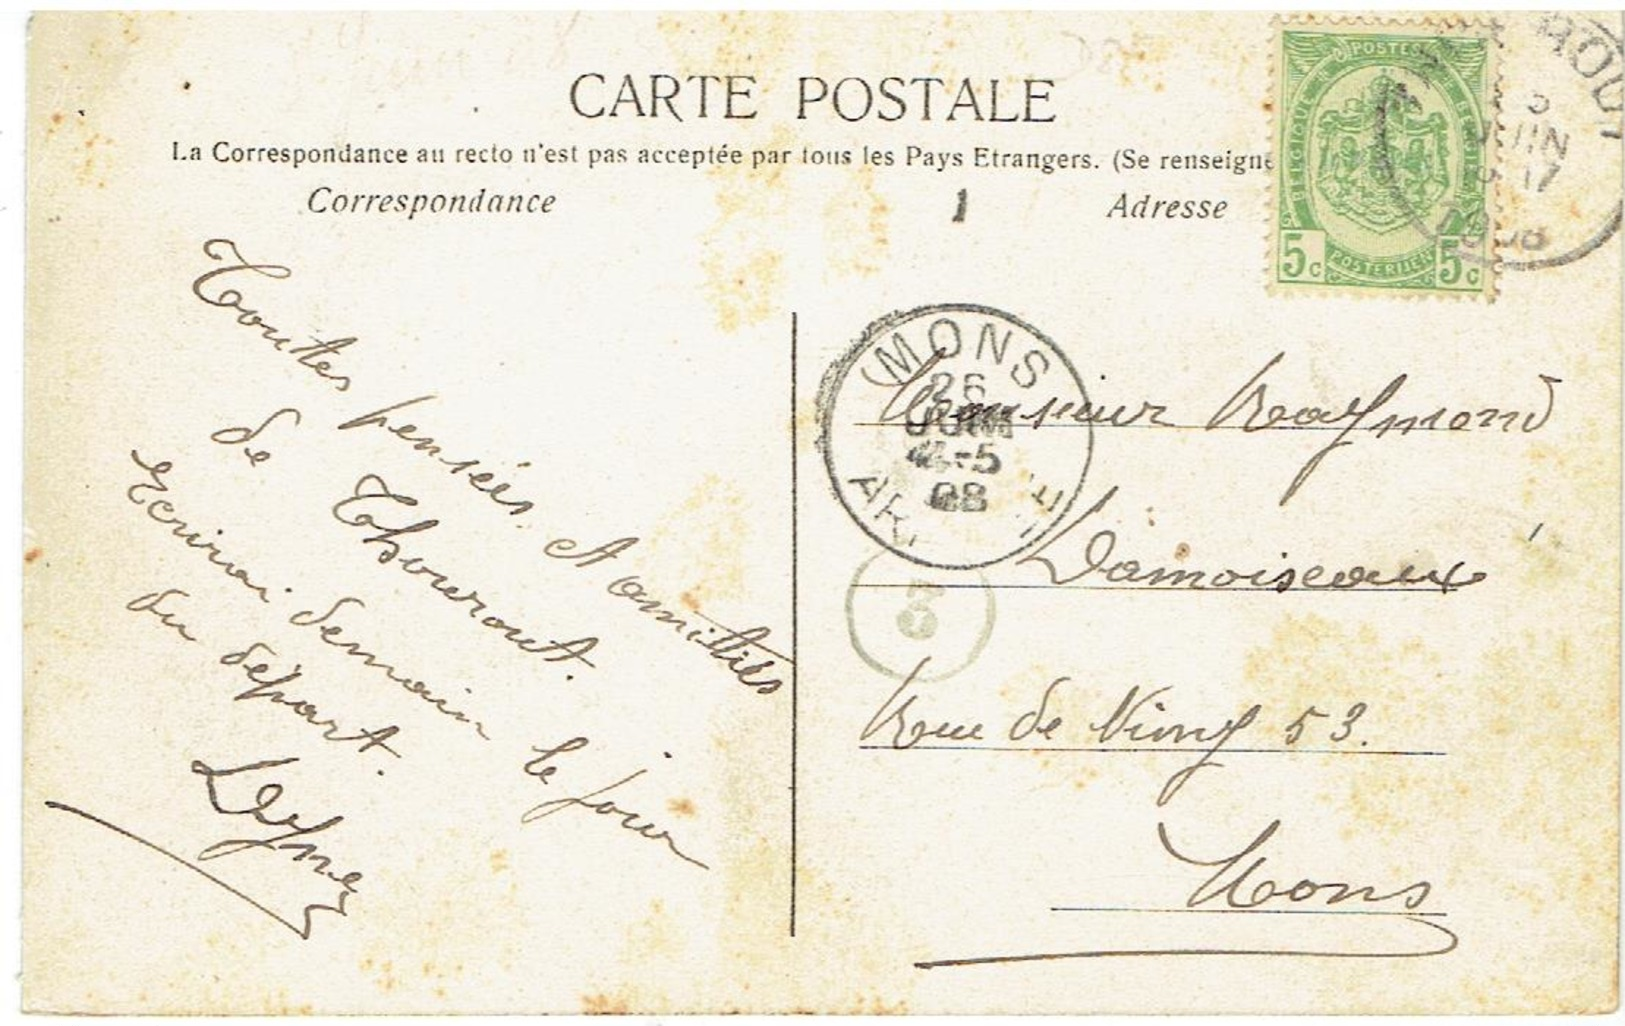 CARTE POSTALE
La Correspondance au recto n'est pas acceptée par tous les Pays Etrangers. (Se renseigne
Correspondance
1
Adresse
POSTES
BELGIQUE
POSTERIJEN
5c 5c
HOUT
JUIN
17
1908
Toutes pensées et amitiés
de Thourout.
Ecrirai demain le jour
du départ.
MONS
26
JUIN
4-5
08
5
Monsieur Raymond
Damoiseaux
Rue de Nimy 53.
Mons